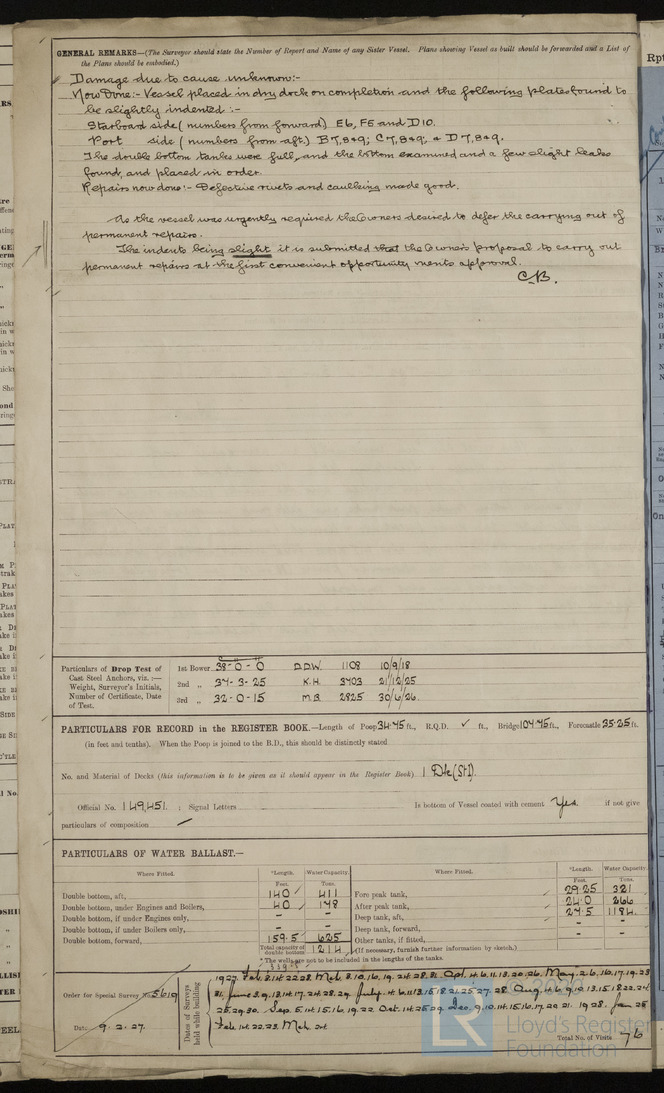 GENERAL REMARKS—(The Surveyor should state the Number of Report and Name of any Sister Vessel. Plans showing Vessel as built should be forwarded and a List of
the Plans should be embodied.)
Damage due to cause unknown:-
Now Done:- Vessel placed in dry dock on completion and the following plates found to
be slightly indented :-
Starboard side (numbers from forward) E6, F5 and D10.
Port side (numbers from aft.) B7,8&9; C7,8&9; & D7,8&9.
The double bottom tanks were full, and the bottom examined and a few slight leaks
found, and placed in order.
Repairs now done:- Defective rivets and caulking made good.
As the vessel was urgently required the Owners desired to defer the carrying out of
permanent repairs.
The indents being slight it is submitted that the Owner's proposal to carry out
permanent repairs at the first convenient opportunity merits approval.
C.B.
Particulars of Drop Test of
Cast Steel Anchors, viz. :—
Weight, Surveyor's Initials,
Number of Certificate, Date
of Test.
1st Bower 38-0-0 D.D.W. 1108 10/9/18
2nd „ 37-3-25 K.H. 3703 21/12/25
3rd „ 32-0-15 M.B. 2825 30/6/26.
PARTICULARS FOR RECORD in the REGISTER BOOK.—Length of Poop 34.45 ft., R.Q.D. ✓ ft., Bridge 104.45 ft., Forecastle 35.25 ft.
(in feet and tenths). When the Poop is joined to the B.D., this should be distinctly stated
No. and Material of Decks (this information is to be given as it should appear in the Register Book) 1 Dk (Stl).
Official No. 149,451. ; Signal Letters Is bottom of Vessel coated with cement Yes if not give
particulars of composition
PARTICULARS OF WATER BALLAST.—
Where Fitted. *Length. Water Capacity. Where Fitted. *Length. Water Capacity.
Feet. Tons. Feet. Tons.
Double bottom, aft, 140 411 Fore peak tank, 29.25 321
Double bottom, under Engines and Boilers, 40 178 After peak tank, 24.0 266
Double bottom, if under Engines only, - - Deep tank, aft, 27.5 1184
Double bottom, if under Boilers only, - - Deep tank, forward, - -
Double bottom, forward, 159.5 625 Other tanks, if fitted, - -
Total capacity of double bottom 1214 (If necessary, furnish further information by sketch.)
* The wells are not to be included in the lengths of the tanks.
339.5
Order for Special Survey No. 5619
Date 9. 2. 27.
Dates of Surveys held while building
1927. Feb. 8.14.22.28. Mch. 8.10.16.19.24.28.31. Apl. 4.6.11.13.20.26. May. 2.6.16.17.19.23
31. June 3.9.13.14.17.24.28.29. July. 4.6.11.13.15.18.21.25.27.28. Aug. 4.6.9.10.13.15.18.22.24
25.29.30. Sep. 5.14.15.16.19.22 Oct. 14.25.29. Dec. 9.10.14.15.16.17.20.21. 1928. Jan 25
Feb. 14.22.23. Mch. 24
Total No. of Visits 76
Lloyd's Register
Foundation